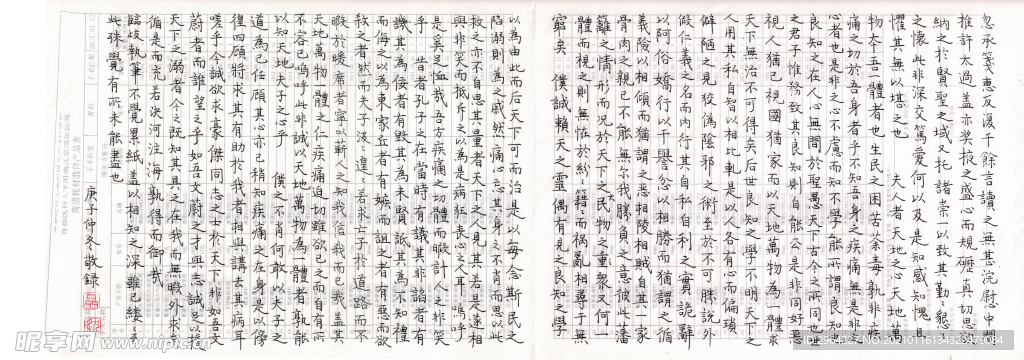 忽承箋惠反復千餘言讀之無甚浣慰中間
推許太過蓋亦奖掖之盛心而規礪真切思欲
納之於賢聖之域又托諸崇一以致其勤懇
之懷此非深交篤愛何以及是是知感知愧且
懼其無以堪之也 夫人者天地之心天地萬
物本吾一體者也生民之困苦荼毒孰非疾
痛之切於吾身者乎不知吾身之疾痛無是非之
心者也是非之心不慮而知不學而能所謂
良知也良知之在人心無間於聖愚天下古今之所同也世
之君子惟務致其良知則自能公是非同好惡
視人猶己視國猶家而以天地萬物為一體求
天下無治不可得矣后世良知之學不明天下之
人用其私自智以相比軋是以人各有心而偏瑣
僻陋之見狡偽陰邪之術至於不可勝說外
假仁義之名而内行其自私自利之實詭辭
以阿俗矯行以干譽忿以相勝而猶謂之徇
義險以相傾而猶謂之惡相陵相賊自其一家
骨肉之親已不能無尔我勝負之意彼此藩
籬之情形而况於天下之大民物之衆又何一
體而視之則無怪於紛籍而禍亂相尋於無
窮矣 僕誠賴天之靈偶有見於良知之學
以為由此而后天下可而治是以每念斯民之
陷溺則為之戚然痛心忘其身之不肖而思以此
救之亦不自思其量者天下之人見其若是遂相
與非笑而抵斥之以為是病狂喪心之人耳嗚呼
是奚足恤哉吾方疾痛之切體而暇計人之非笑
乎 昔者孔子之在當時有議其非諂者有
譏其為佞者有毀其為未賢詆其為不知禮
而侮之以為東家丘者有嫉而詛之者有惡而欲
殺之者然而夫子汲汲遑遑若求亡子於道路而不
暇於暖席者寧以蘄人之知我信我而已哉蓋其
天地萬物一體之仁疾痛迫切雖欲已之而自有所
不容已嗚呼此非誠以天地萬物為一體者孰能
以知夫子之心乎 僕之不肖何敢以夫子之
道為己任顧其心亦已稍知疾痛之在身是以傍
徨四顧將求其有助於我者相與講去其病耳
嗟乎今誠欲求豪傑同志之士於天下非如吾文
蔚者而誰望之乎如吾文蔚之才與志誠足以援
天下之溺者今又既知其具之在我而無暇外求
循是而充若決河注海孰得而御哉
臨歧執筆不覺累紙蓋以相知之深雖已縷縷
此殊覺有所未能盡也
庚子仲冬敬録
昵享网 www.nipic.cn